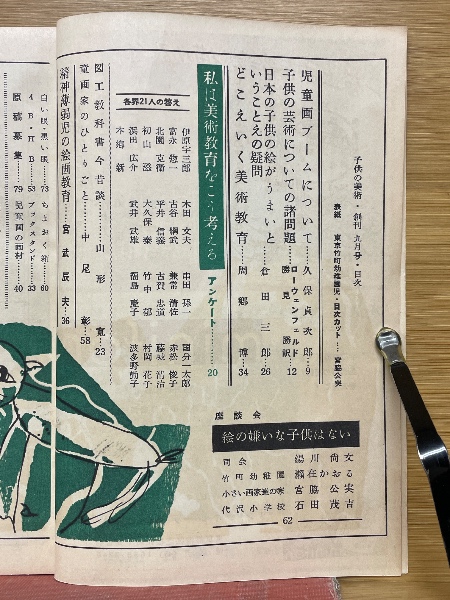 子供の美術・創刊九月号・目次
表紙 東京竹町幼稚園児・目次カット… 宮脇公実
児童画ブームについて……久保貞次郎…9
子供の芸術についての諸問題…ローウェンフェルド 勝見勝訳…12
日本の子供の絵がうまいと
いうことえの疑問………倉田三郎…26
どこえいく美術教育……周郷博…34
私は美術教育をこう考える アンケート………20
各界21人の答え
伊原宇三郎 木田文夫 串田孫一 国分一太郎
富永惣一 古谷綱武 兼常清佐 赤松俊子
北園克衛 平井信義 古賀忠道 藤城清治
初山滋 大久保泰 竹中郁 村岡花子
浜田広介 武井武雄 福島慶子 波多野勤子
本郷新
図工教科書今昔談……山形寛…23
童画家のひとりごと……中尾彰…58
精神薄弱児の絵画教育……宮武辰夫…36
白い眼・黒い眼……73
ちょおく箱……60
4B・HB……53
ブックスタンド……33
原稿募集……79
児童画の画材……40
座談会
絵の嫌いな子供はない
司会 湯川尚文
竹町幼稚園 瀬在かおる
小さい画家達の家 宮脇公実
代沢小学校 石田茂吉
62